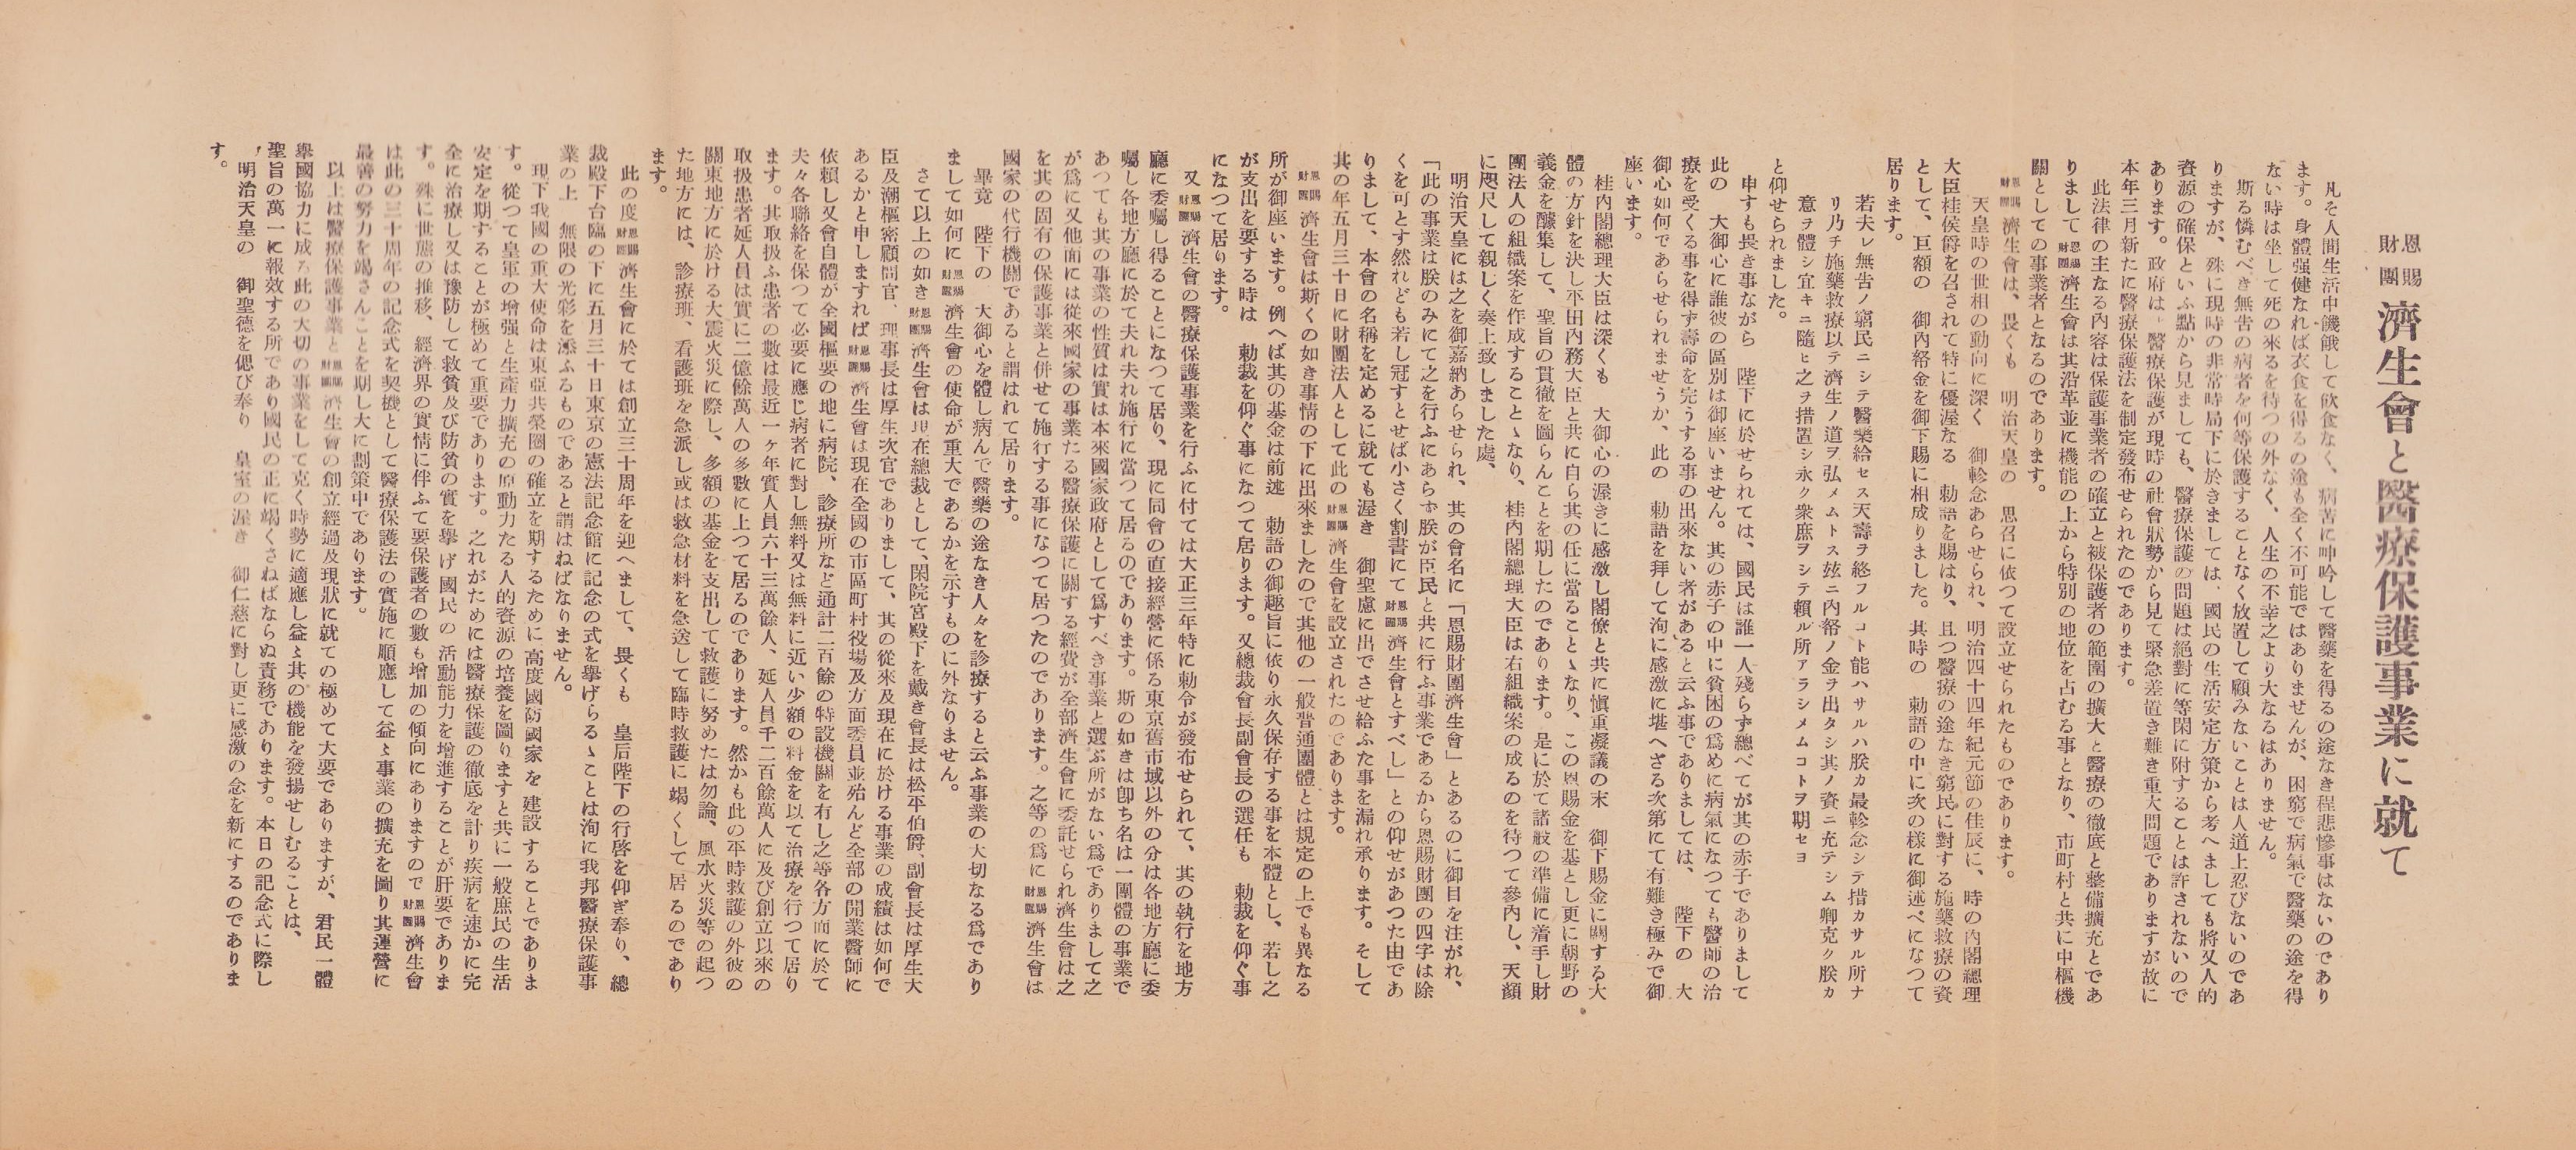 恩賜財團 濟生會と醫療保護事業に就て
凡そ人間生活中饑餓して飮食なく、病苦に呻吟して醫藥を得るの途なき程悲慘事はないのであり
ます。身體强健なれば衣食を得るの途も全く不可能ではありませんが、困窮で病氣で醫藥の途を得
ない時は坐して死の來るを待つの外なく、人生の不幸之より大なるはありません。
斯る憐むべき無吿の病者を何等保護することなく放置して顧みないことは人道上忍びないのであ
りますが、殊に現時の非常時局下に於きましては、國民の生活安定方策から考へましても將又人的
資源の確保といふ點から見ましても、醫療保護の問題は絕對に等閑に附することは許されないので
あります。政府は、醫療保護が現時の社會狀勢から見て緊急差置き難き重大問題でありますが故に
本年三月新たに醫療保護法を制定發布せられたのであります。
此法律の主なる內容は保護事業者の確立と被保護者の範圍の擴大と醫療の徹底と整備擴充とであ
りまして恩賜財團濟生會は其沿革並に機能の上から特別の地位を占むる事となり、市町村と共に中樞機
關としての事業者となるのであります。
恩賜財團濟生會は、畏くも 明治天皇の 思召に依つて設立せられたものであります。
天皇時の世相の動向に深く 御軫念あらせられ、明治四十四年紀元節の佳辰に、時の內閣總理
大臣桂侯爵を召されて特に優渥なる 勅語を賜はり、且つ醫療の途なき窮民に對する施藥救療の資
として、巨額の 御內帑金を御下賜に相成りました。其時の 勅語の中に次の樣に御述べになつて
居ります。
若夫レ無吿ノ窮民ニシテ醫藥給セス天壽ヲ終フルコト能ハサルハ朕カ最軫念シテ措カサル所ナ
リ乃チ施藥救療以テ濟生ノ道ヲ弘メムトス玆ニ內帑ノ金ヲ出タシ其ノ資ニ充テシム卿克ク朕カ
意ヲ體シ宜キニ隨ヒ之ヲ措置シ永ク衆庶ヲシテ賴ル所アラシメムコトヲ期セヨ
と仰せられました。
申すも畏き事ながら 陛下に於せられては、國民は誰一人殘らず總べてが其の赤子でありまして
此の 大御心に誰彼の區別は御座いません。其の赤子の中に貧困の爲めに病氣になつても醫師の治
療を受くる事を得ず壽命を完うする事の出來ない者があると云ふ事でありましては、 陛下の 大
御心如何であらせられませうか、此の 勅語を拜して洵に感激に堪へざる次第にて有難き極みで御
座います。
桂內閣總理大臣は深くも 大御心の渥きに感激し閣僚と共に愼重凝議の末 御下賜金に關する大
體の方針を決し平田內務大臣と共に自ら其の任に當ることゝなり、この恩賜金を基とし更に朝野の
義金を醵集して、聖旨の貫徹を圖らんことを期したのであります。是に於て諸般の準備に着手し財
團法人の組織案を作成することゝなり、桂內閣總理大臣は右組織案の成るのを待つて參內し、天顏
に咫尺して親しく奏上致しました處、
明治天皇には之を御嘉納あらせられ、其の會名に「恩賜財團濟生會」とあるのに御目を注がれ、
「此の事業は朕のみにて之を行ふにあらず朕が臣民と共に行ふ事業であるから恩賜財團の四字は除
くを可とす然れども若し冠すとせば小さく割書にて恩賜財團濟生會とすべし」との仰せがあつた由であ
りまして、本會の名稱を定めるに就ても渥き 御聖慮に出でさせ給ふた事を漏れ承ります。そして
其の年五月三十日に財團法人として此の恩賜財團濟生會を設立されたのであります。
恩賜財團濟生會は斯くの如き事情の下に出來ましたので其他の一般普通團體とは規定の上でも異なる
所が御座います。例へば其の基金は前述 勅語の御趣旨に依り永久保存する事を本體とし、若し之
が支出を要する時は 勅裁を仰ぐ事になつて居ります。又總裁會長副會長の選任も 勅裁を仰ぐ事
になつて居ります。
又恩賜財團濟生會の醫療保護事業を行ふに付ては大正三年特に勅令が發布せられて、其の執行を地方
廳に委囑し得ることになつて居り、現に同會の直接經營に係る東京舊市域以外の分は各地方廳に委
囑し各地方廳に於て夫れ夫れ施行に當つて居るのであります。斯の如きは卽ち名は一團體の事業で
あつても其の事業の性質は實は本來國家政府として爲すべき事業と選ぶ所がない爲でありまして之
が爲に又他面には從來國家の事業たる醫療保護に關する經費が全部濟生會に委託せられ濟生會は之
を其の固有の保護事業と併せて施行する事になつて居つたのであります。之等の爲に恩賜財團濟生會は
國家の代行機關であると謂はれて居ります。
畢竟 陛下の 大御心を體し病んで醫藥の途なき人々を診療すると云ふ事業の大切なる爲であり
まして如何に恩賜財團濟生會の使命が重大であるかを示すものに外なりません。
さて以上の如き恩賜財團濟生會は現在總裁として、閑院宮殿下を戴き會長は松平伯爵、副會長は厚生大
臣及潮樞密顧問官、理事長は厚生次官でありまして、其の從來及現在に於ける事業の成績は如何で
あるかと申しますれば恩賜財團濟生會は現在全國の市區町村役場及方面委員並殆んど全部の開業醫師に
依賴し又會自體が全國樞要の地に病院、診療所など通計二百餘の特設機關を有し之等各方面に於て
夫々各聯絡を保つて必要に應じ病者に對し無料又は無料に近い少額の料金を以て治療を行つて居り
ます。其取扱ふ患者の數は最近一ヶ年實人員六十三萬餘人、延人員千二百餘萬人に及び創立以來の
取扱患者延人員は實に二億餘萬人の多數に上つて居るのであります。然かも此の平時救護の外彼の
關東地方に於ける大震火災に際し、多額の基金を支出して救護に努めたは勿論、風水火災等の起つ
た地方には、診療班、看護班を急派し或は救急材料を急送して臨時救護に竭くして居るのであり
ます。
此の度恩賜財團濟生會に於ては創立三十周年を迎へまして、畏くも 皇后陛下の行啓を仰ぎ奉り、總
裁殿下台臨の下に五月三十日東京の憲法記念館に記念の式を擧げらるゝことは洵に我邦醫療保護事
業の上 無限の光彩を添ふるものであると謂はねばなりません。
現下我國の重大使命は東亞共榮圈の確立を期するために高度國防國家を建設することでありま
す。從つて皇軍の增强と生產力擴充の原動力たる人的資源の培養を圖りますと共に一般庶民の生活
安定を期することが極めて重要であります。之れがためには醫療保護の徹底を計り疾病を速かに完
全に治療し又は豫防して救貧及び防貧の實を擧げ國民の活動能力を增進することが肝要でありま
す。殊に世態の推移、經濟界の實情に伴ふて要保護者の數も增加の傾向にありますので恩賜財團濟生會
は此の三十周年の記念式を契機として醫療保護法の實施に順應して益〻事業の擴充を圖り其運營に
最善の努力を竭さんことを期し大に劃策中であります。
以上は醫療保護事業と恩賜財團濟生會の創立經過及現狀に就ての極めて大要でありますが、君民一體
擧國協力に成る此の大切の事業をして克く時勢に適應し益〻其の機能を發揚せしむることは、
聖旨の萬一に報效する所であり國民の正に竭くさねばならぬ責務であります。本日の記念式に際し
明治天皇の 御聖德を偲び奉り 皇室の渥き 御仁慈に對し更に感激の念を新にするのでありま
す。